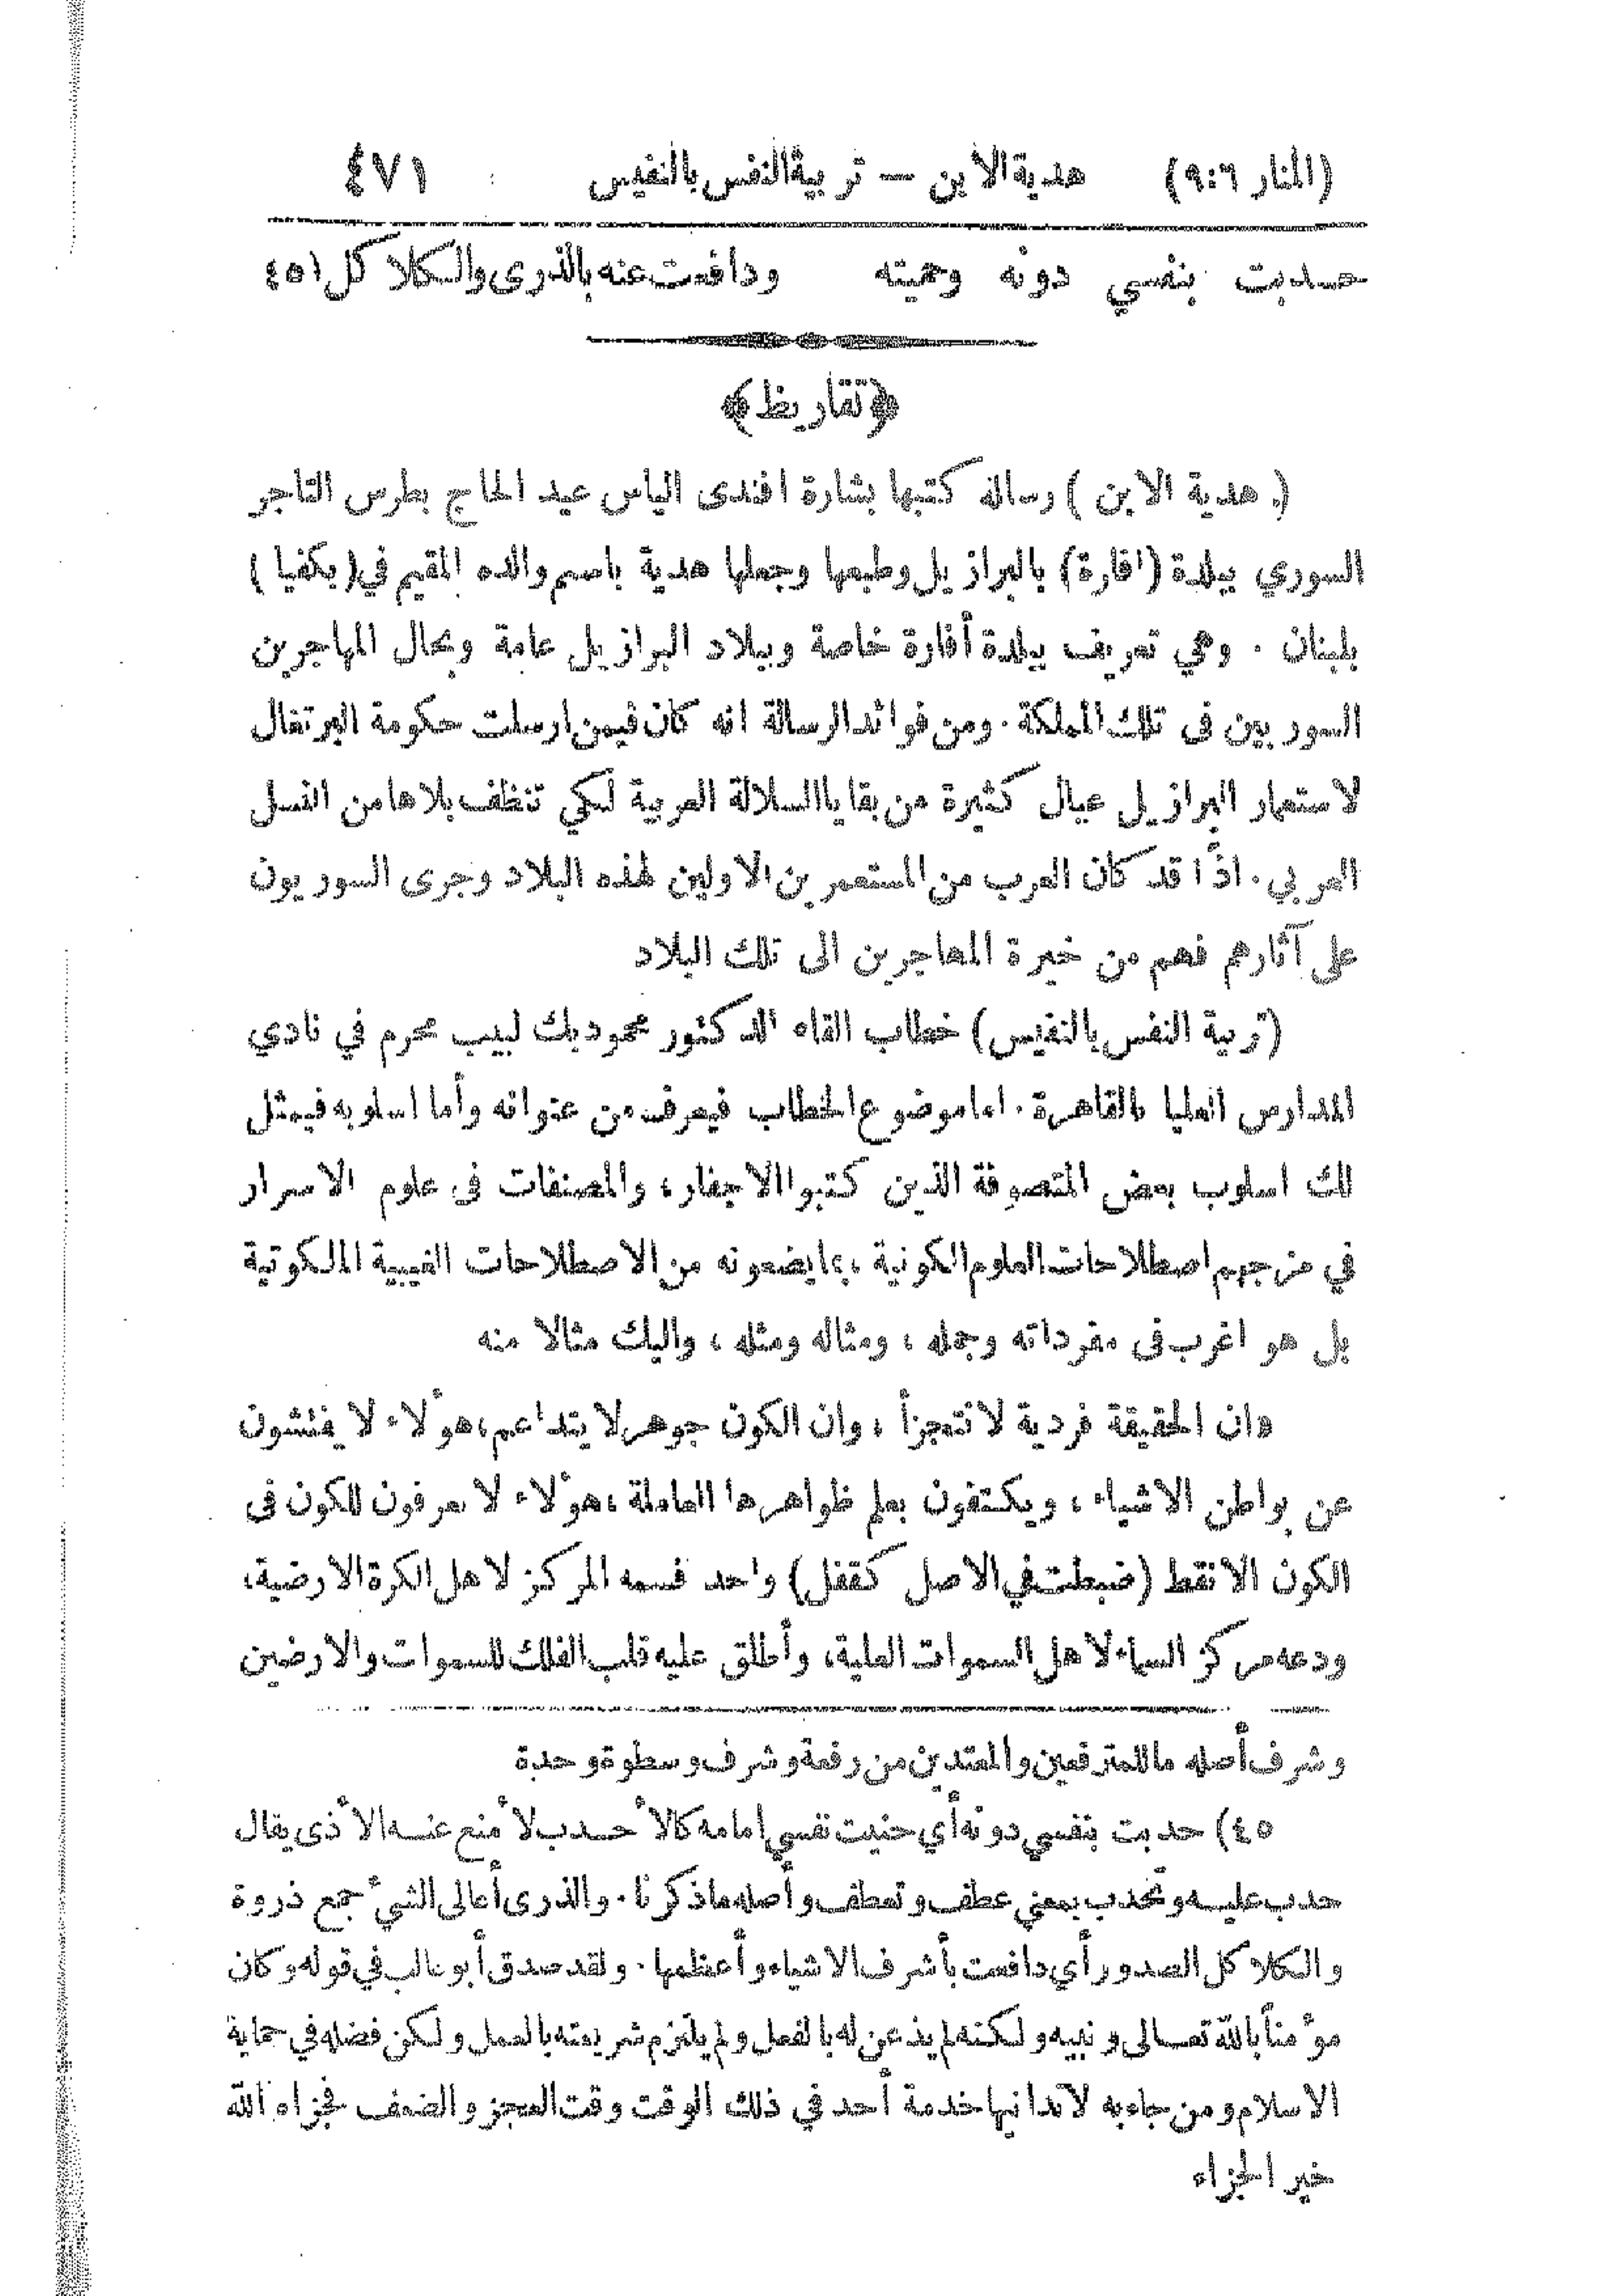 (المنار ٩:٦) هدية الابن — تربية النفس بالنفيس ٤٧١
حدبت بنفسي دونه وحميته ودافعت عنه بالذرى والكلاكل (٤٥
﴿تقاريظ﴾
( هدية الابن ) رسالة كتبها بشارة افندى الياس عيد الحاج بطرس التاجر
السوري ببلدة (افارة) بالبرازيل وطبعها وجعلها هدية باسم والده المقيم في (بكفيا)
بلبنان . وهي تعريف ببلدة أفارة خاصة وببلاد البرازيل عامة وبحال المهاجرين
السوريين فى تلك المملكة . ومن فوائد الرسالة انه كان فيمن ارسلت حكومة البرتغال
لاستعمار البرازيل عيال كثيرة من بقايا السلالة العربية لكي تنظف بلادها من النسل
العربي . اذًا قد كان العرب من المستعمرين الاولين لهذه البلاد وجرى السوريون
على آثارهم فهم من خيرة المهاجرين الى تلك البلاد
(تربية النفس بالنفيس) خطاب القاه الدكتور محمود بك لبيب محرم في نادي
المدارس العليا بالقاهرة . اما موضوع الخطاب فيعرف من عنوانه وأما اسلوبه فيمثل
لك اسلوب بعض المتصوفة الذين كتبوا الاجفار ، والمصنفات فى علوم الاسرار
في مزجهم اصطلاحات العلوم الكونية ، بما يضعونه من الاصطلاحات الغيبية الملكوتية
بل هو اغرب فى مفرداته وجمله ، ومثاله ومثله ، واليك مثالا منه
«ان الحقيقة فردية لا تتجزأ ، وان الكون جوهر لا يتداعم ، هؤلاء لا يفتشون
عن بواطن الاشياء ، ويكتفون بعلم ظواهرها العاملة ، هؤلاء لا يعرفون للكون فى
الكون الا نقط (ضبطت في الاصل كقفل) واحد فسمه المركز لاهل الكرة الارضية ،
ودعه مركز السماء لاهل السموات العلية ، وأطلق عليه قلب الفلك للسموات والارضين
وشرف أصله ما للمترفعين والمعتدين من رفعة وشرف وسطوة وحدة
٤٥) حدبت بنفسي دونه أي حنيت نفسي إمامه كالأحدب لأمنع عنه الأذى يقال
حدب عليه وتحدب بمعنى عطف وتعطف وأصله ما ذكرنا . والذرى أعالى الشيء جمع ذروة
والكلاكل الصدور أي دافعت بأشرف الاشياء وأعظمها . ولقد صدق أبو طالب في قوله وكان
مؤمناً بالله تعالى ونبيه ولكنه لم يذعن له بالفعل ولم يلتزم شريعته بالعمل ولكن فضله في حماية
الاسلام ومن جاء به لا تدانيها خدمة أحد في ذلك الوقت وقت العجز والضعف فجزاه الله
خير الجزاء